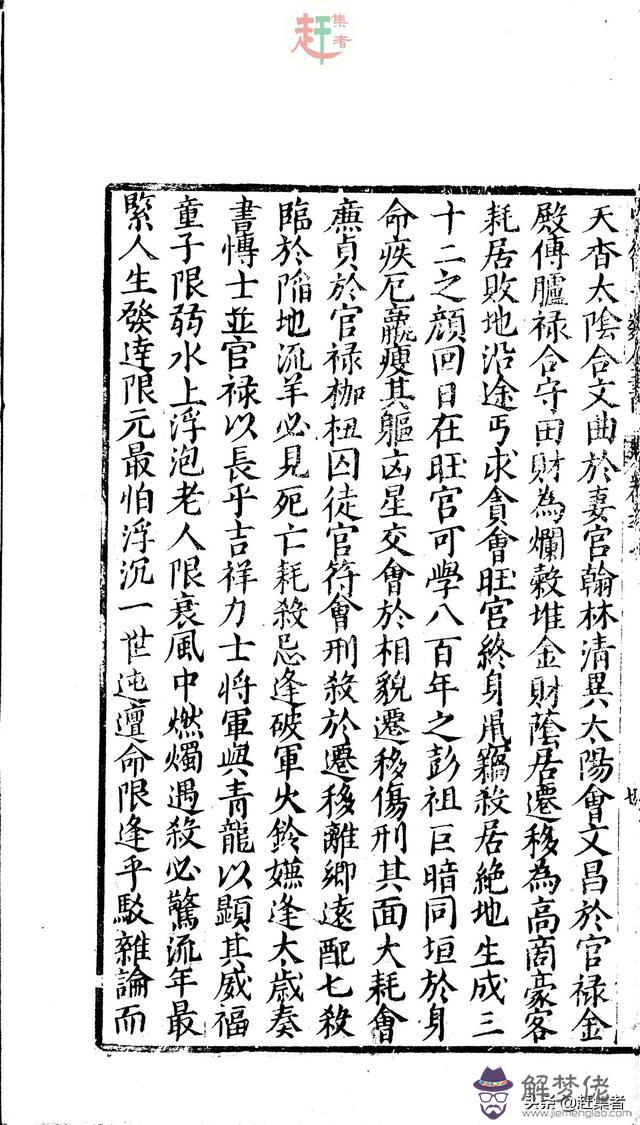 赶集者
天杳太陰合文曲於妻宮翰林清異太陽會文昌於官禄金
殿傳臚禄合守田財為爛穀堆金財蔭居遷移為高商豪客
耗居敗地沿途丐求貪會旺宮終身鼠竊殺居絶地生成三
十二之顔回日在旺宮可學八百年之彭祖巨暗同垣於身
命疾厄羸瘦其軀凶星交會於相貌遷移傷刑其面大耗會
廉貞於官禄枷杻囚徒官符會刑殺於遷移離鄉遠配七殺
臨於陥地流羊必見死亡耗殺忌逢破軍火鈴嫌逢太歲奏
書愽士並官禄以長乎吉祥力士將軍與青龍以顕其威福
童子限弱水上浮泡老人限衰風中燃燭遇殺必驚流年最
緊人生發達限元最怕浮沉一世迍邅命限逢乎駁雜論而
解梦佬
头条@赶集者
www.jiemenglao.com